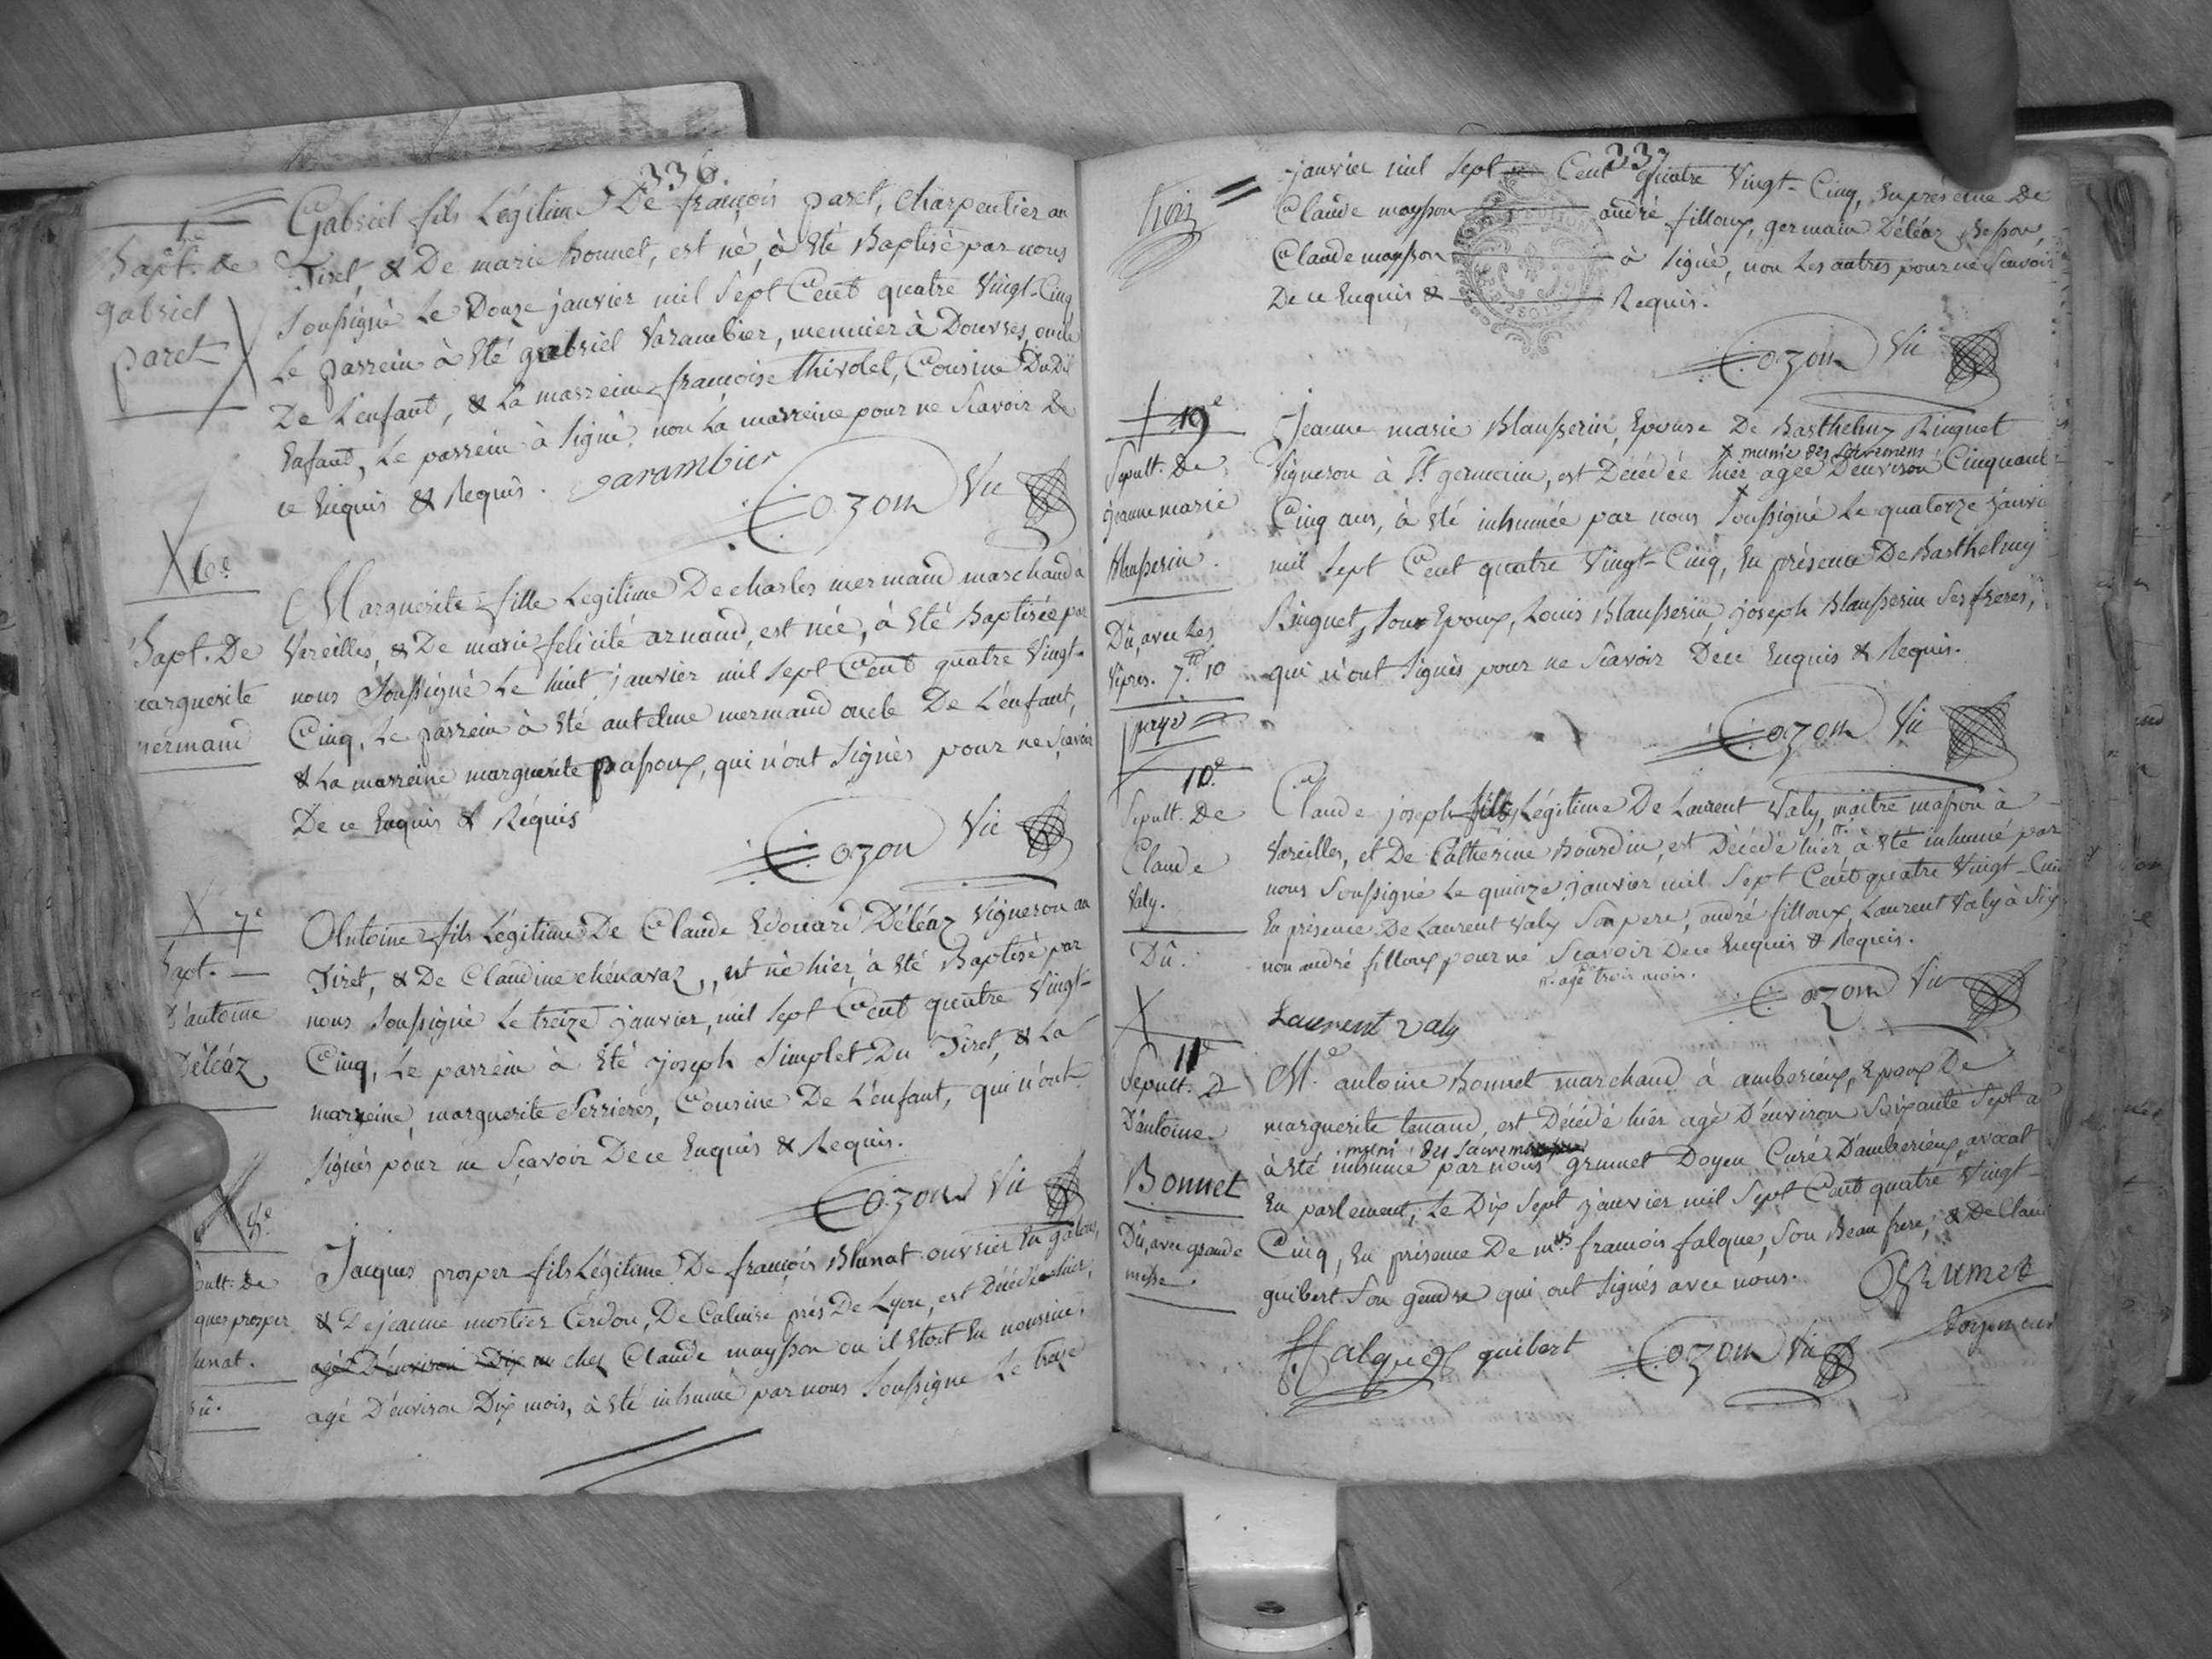 336
5e
Bapt. de
gabriel
paret
Gabriel fils Légitime De françois paret, charpentier au
Tiret, & De marie Bonnet, est né, à été Baptisé par nous
soussigné Le Douze janvier mil sept Cent quatre Vingt-Cinq
Le parrein à été gabriel Varambier, meunier à Douvres, oncle
De L'enfant, & La marreine françoise thivolet, Cousine Dudit
Enfant, Le parrein à signé, non La marreine pour ne scavoir De
ce Enquis & Requis. varambier
Cozon Vic
6e
Bapt. De
marguerite
mermand
Marguerite fille Legitime De charles mermand marchand à
Vareilles, & De marie felicité arnaud, est née, à été Baptisée par
nous soussigné Le huit janvier mil sept Cent quatre Vingt-
Cinq, Le parrein à été antelme mermand oncle De L'enfant,
& La marreine marguerite passoux, qui n'ont signès pour ne sçavoir
De ce Enquis & Réquis
Cozon Vic
7e
Bapt.
D'antoine
Déléaz
Antoine fils Légitime De Claude Edouard Déléaz Vigneron au
Tiret, & De Claudine chénavaz, est né hier, à été Baptisé par
nous soussigné Le treize janvier, mil sept Cent quatre Vingt-
Cinq, Le parrein à été joseph simplet Du Tiret, & La
marreine, marguerite serrieres, Cousine De L'enfant, qui n'ont
signès pour ne sçavoir De ce Enquis & Requis.
Cozon Vic
8e
pult. de
ques prosper
unat.
Jacques prosper fils Légitime De françois Blunat ouvrier En galons,
& De jeanne mortier Cerdon, De Caluire près De Lyon, est Décédé hier,
agé D'environ Dix m chez Claude maysson ou il étoit En nourrice,
agé D'environ Dix mois, à été inhumé par nous soussigné Le treize
337
janvier mil sept Cent quatre Vingt-Cinq, En présence De
Claude maysson andré filloux, germain Déléaz, Besson,
Claude maysson à signé, non Les autres pour ne scavoir
De ce Enquis & Requis.
Cozon Vic
9e
Sepult. de
jeanne marie
Blausserin
Dû, avec Les
Vêpres. 7. 10
payé
Jeanne marie Blausserin, Epouse De Barthelmy Ringuet
munie des sacremens
Vigneron à St. germain, est Décédée hier agée D'environ Cinquante
Cinq ans, à été inhumée par nous soussigné Le quatorze janvi
mil sept Cent quatre Vingt-Cinq, En présence De Barthelmy
Ringuet, son Epoux, Louis Blausserin, joseph Blausserin ses freres,
qui n'ont signès pour ne scavoir De ce Enquis & Requis.
Cozon Vic
10e
Sepult. De
Claude
Valy.
Dû.
Claude joseph fils Légitime De Laurent Valy, maître masson à
Vareilles, et De Catherine Bourdin, est Décédé hier à été inhumé par
nous soussigné Le quinze janvier mil sept Cent quatre Vingt-Cinq
En présence De Laurent Valy son pere, andré filloux, Laurent Valy à sig
non andré filloux pour ne scavoir De ce Enquis & Requis.
agé trois mois.
Cozon Vic
Laurent valy
11e
Sepult.
D'antoine
Bonnet
Dû, avec grande
messe.
Me. antoine Bonnet marchand à amberieux, Epoux De
marguerite tenand, est Décédé hier agé D'environ soixante sept a
muni des sacremens
à été inhumé par nous grumet Doyen Curé D'amberieux, avocat
En parlement, Le Dix sept janvier mil sept Cent quatre Vingt-
Cinq, En présence De mrs françois falque, son Beau frere, & De Claude
guibert son gendre qui ont signés avec nous.
Grumet
doyen curé
falque guibert Cozon Vic